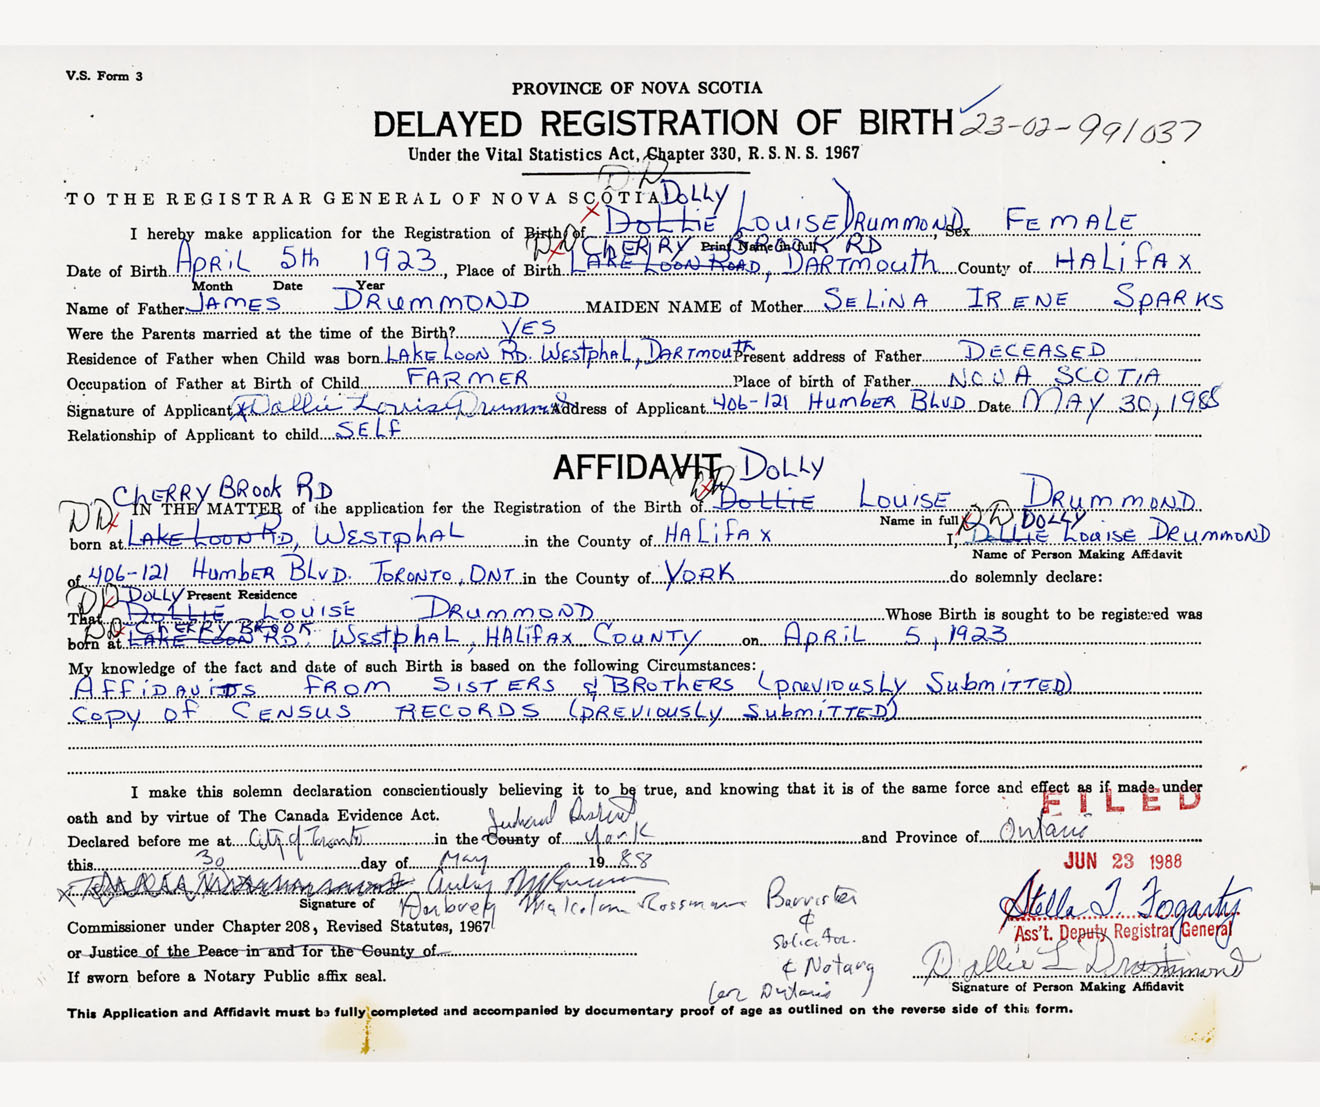 V.S. Form 3
PROVINCE OF NOVA SCOTIA
DELAYED REGISTRATION OF BIRTH 23-02-991037
Under the Vital Statistics Act, Chapter 330, R. S. N. S. 1967
D D
TO THE REGISTRAR GENERAL OF NOVA SCOTIA DOLLY
I hereby make application for the Registration of Birth of DOLLIE LOUISE DRUMMOND, Sex FEMALE
DD CHERRY BROOK RD Print Name (in full)
Date of Birth April 5th 1923, Place of Birth LAKE LOON ROAD, DARTMOUTH County of HALIFAX
Month Date Year
Name of Father JAMES DRUMMOND MAIDEN NAME of Mother SELINA IRENE SPARKS
Were the Parents married at the time of the Birth? YES
Residence of Father when Child was born LAKE LOON RD. WESTPHAL, DARTMOUTH Present address of Father DECEASED
Occupation of Father at Birth of Child FARMER Place of birth of Father NOVA SCOTIA
Signature of Applicant x Dallie Louise Drummond Address of Applicant 406-121 HUMBER BLVD Date MAY 30, 1988
Relationship of Applicant to child SELF
AFFIDAVIT DOLLY
CHERRY BROOK RD
IN THE MATTER of the application for the Registration of the Birth of DD DOLLIE LOUISE DRUMMOND
Name in full DD DOLLY
DD born at LAKE LOON RD, WESTPHAL in the County of HALIFAX I, DOLLIE LOUISE DRUMMOND
Name of Person Making Affidavit
of 406-121 HUMBER BLVD. TORONTO, ONT in the County of YORK do solemnly declare:
DD DOLLY Present Residence
That DOLLIE LOUISE DRUMMOND Whose Birth is sought to be registered was
DD CHERRY BROOK
born at LAKE LOON RD. WESTPHAL, HALIFAX COUNTY on APRIL 5, 1923
My knowledge of the fact and date of such Birth is based on the following Circumstances:
AFFIDAVITS FROM SISTERS & BROTHERS (PREVIOUSLY SUBMITTED)
COPY OF CENSUS RECORDS (PREVIOUSLY SUBMITTED)
I make this solemn declaration conscientiously believing it to be true, and knowing that it is of the same force and effect as if made under
FILED
oath and by virtue of The Canada Evidence Act.
Judicial District
Declared before me at City of Toronto in the County of York and Province of Ontario
this 30 day of May 1988
JUN 23 1988
Signature of
Malcolm Rossman Barrister
&
Solicitor.
& Notary
for Ontario
Stella T. Fogarty
Ass't. Deputy Registrar General
Commissioner under Chapter 208, Revised Statutes, 1967
or Justice of the Peace in and for the County of
Dallie L Drummond
If sworn before a Notary Public affix seal.
Signature of Person Making Affidavit
This Application and Affidavit must be fully completed and accompanied by documentary proof of age as outlined on the reverse side of this form.